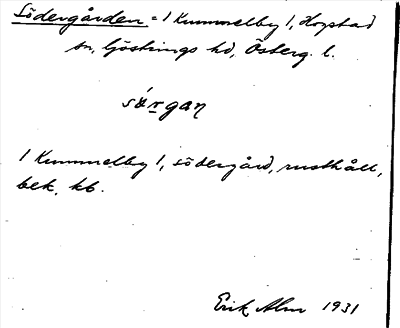 Södergården = 1 Kummelby 1, Hogstad
sn, Göstrings hd, Österg. l.
sörgan
1 Kummelby 1, södergård, rusthåll,
bek. kb.
Erik Alm 1931